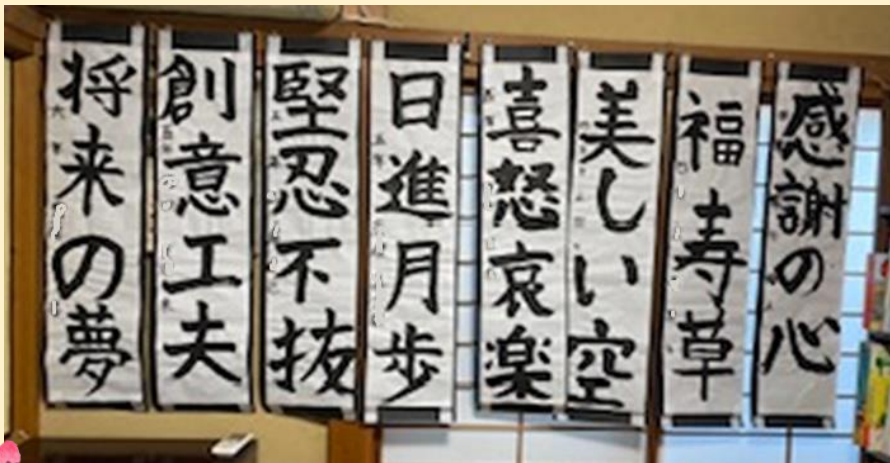 感謝の心
福寿草
美しい空
喜怒哀楽
日進月歩
堅忍不抜
創意工夫
将来の夢